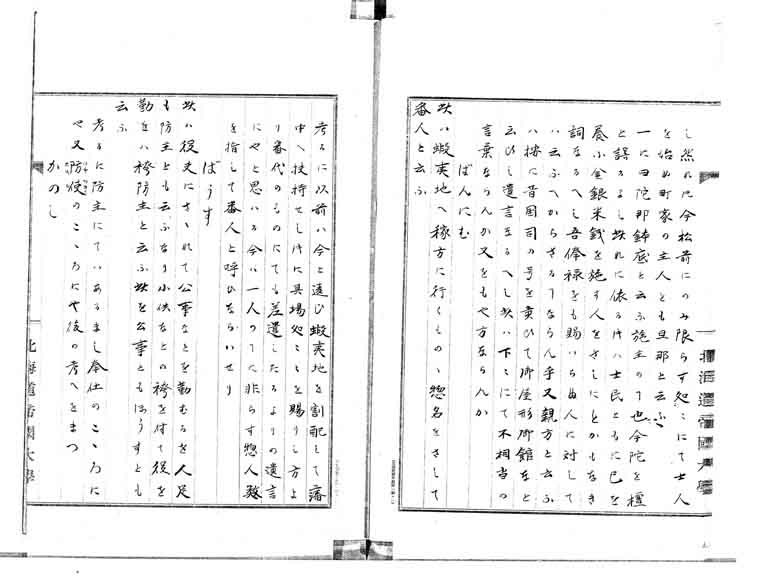 し然れ𪜈今松前にのみ限らす処々にて士人
を始め町家の主人とも旦那と云ふ
一に曰陀那鉢底と云ふ施主の丁也今陀を檀
と誤るよし此れに依る𪜈ハ士民ともに己を
養ふ金銀米銭を施す人をさしにとかもなき
詞なるへし吾俸禄をも賜いらぬ人に対して
ハ云ふへからさる丁ならん乎又親方と云ふ
ハ按に昔国司の号を貴ひて御屋形御館なと
云ひし遺言なるへし此ハ下々にて不相当の
言葉ならんか又をもや方ならんか
ばんにむ
此ハ蝦夷地へ稼方に行くものゝ惣名をさして
番人と云ふ
考るに以前ハ今と違ひ蝦夷地を割配して藩
中へ扶持せし𪜈に其場処ことを賜りし方よ
り番代のものにても差遣したるよりの遺言
にやと思いる今ハ一人の丁に非らす惣人数
を指して番人と呼ひならいせり
ばうず
此ハ役夫にさゝれて公事なとを勤むるを人足
も防主とも云ふなり小供なとの袴を付て役を
勤をハ袴防主と云ふ此を公事ともばうすとも
云ふ
考るに防主にていあるまし奉仕のこゝろに
や又防使のこゝろにや後の考へをまつ
かのし
北海道帝国大学
北海道帝國大學